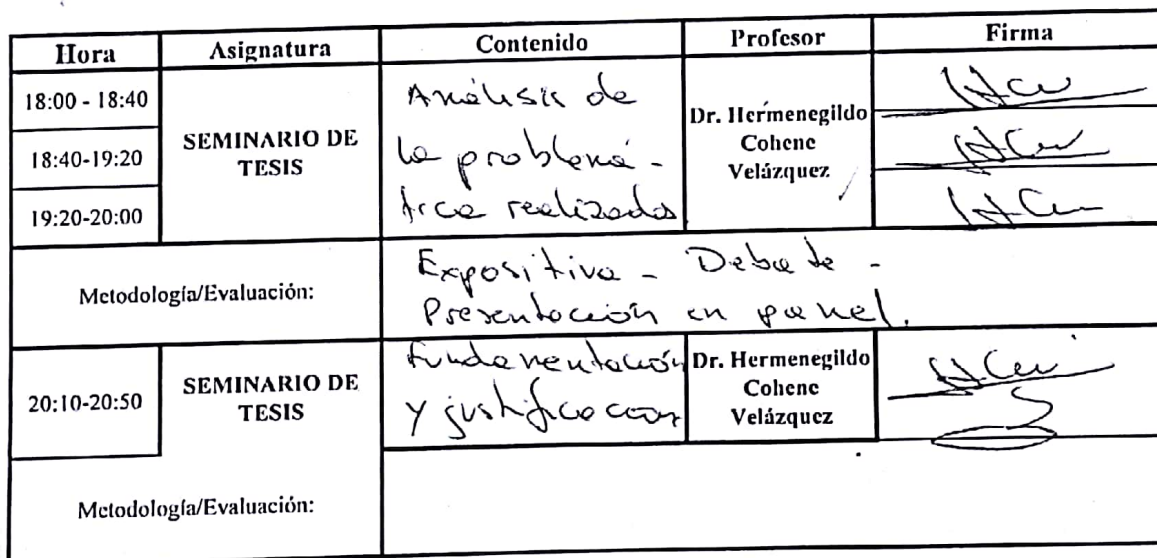 Hora Asignatura Contenido Profesor Firma
18:00 - 18:40
18:40-19:20
19:20-20:00
SEMINARIO DE
TESIS
Análisis de
la problemá-
tica realizada
Dr. Hermenegildo
Cohene
Velázquez
Metodología/Evaluación:
Expositiva - Debate -
Presentación en panel.
20:10-20:50
SEMINARIO DE
TESIS
Fundamentación
y justificación
Dr. Hermenegildo
Cohene
Velázquez
Metodología/Evaluación: